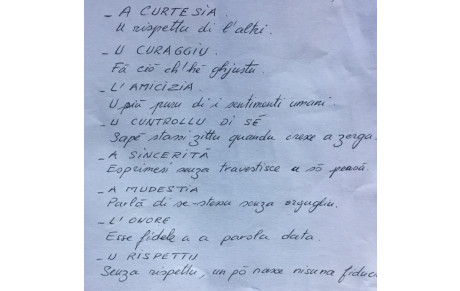 _ A CURTESIA.
U rispettu di l'altri.
_ U CURAGGIU.
Fà ciò ch'hè ghjustu.
_ L'AMICIZIA.
U più puru di i sentimenti umani.
_ U CUNTROLLU DI SÈ
Sapè stassi zittu quandu cresce a zerga.
_ A SINCERITÀ
Esprimesi senza travestisce u sò pensà.
_ A MUDESTIA
Parlà di se-stessu senza orgugliu.
_ L'ONORE
Esse fidele a a parola data.
_ U RISPETTU
Senza rispettu, un pò nasce nisuna fiduc